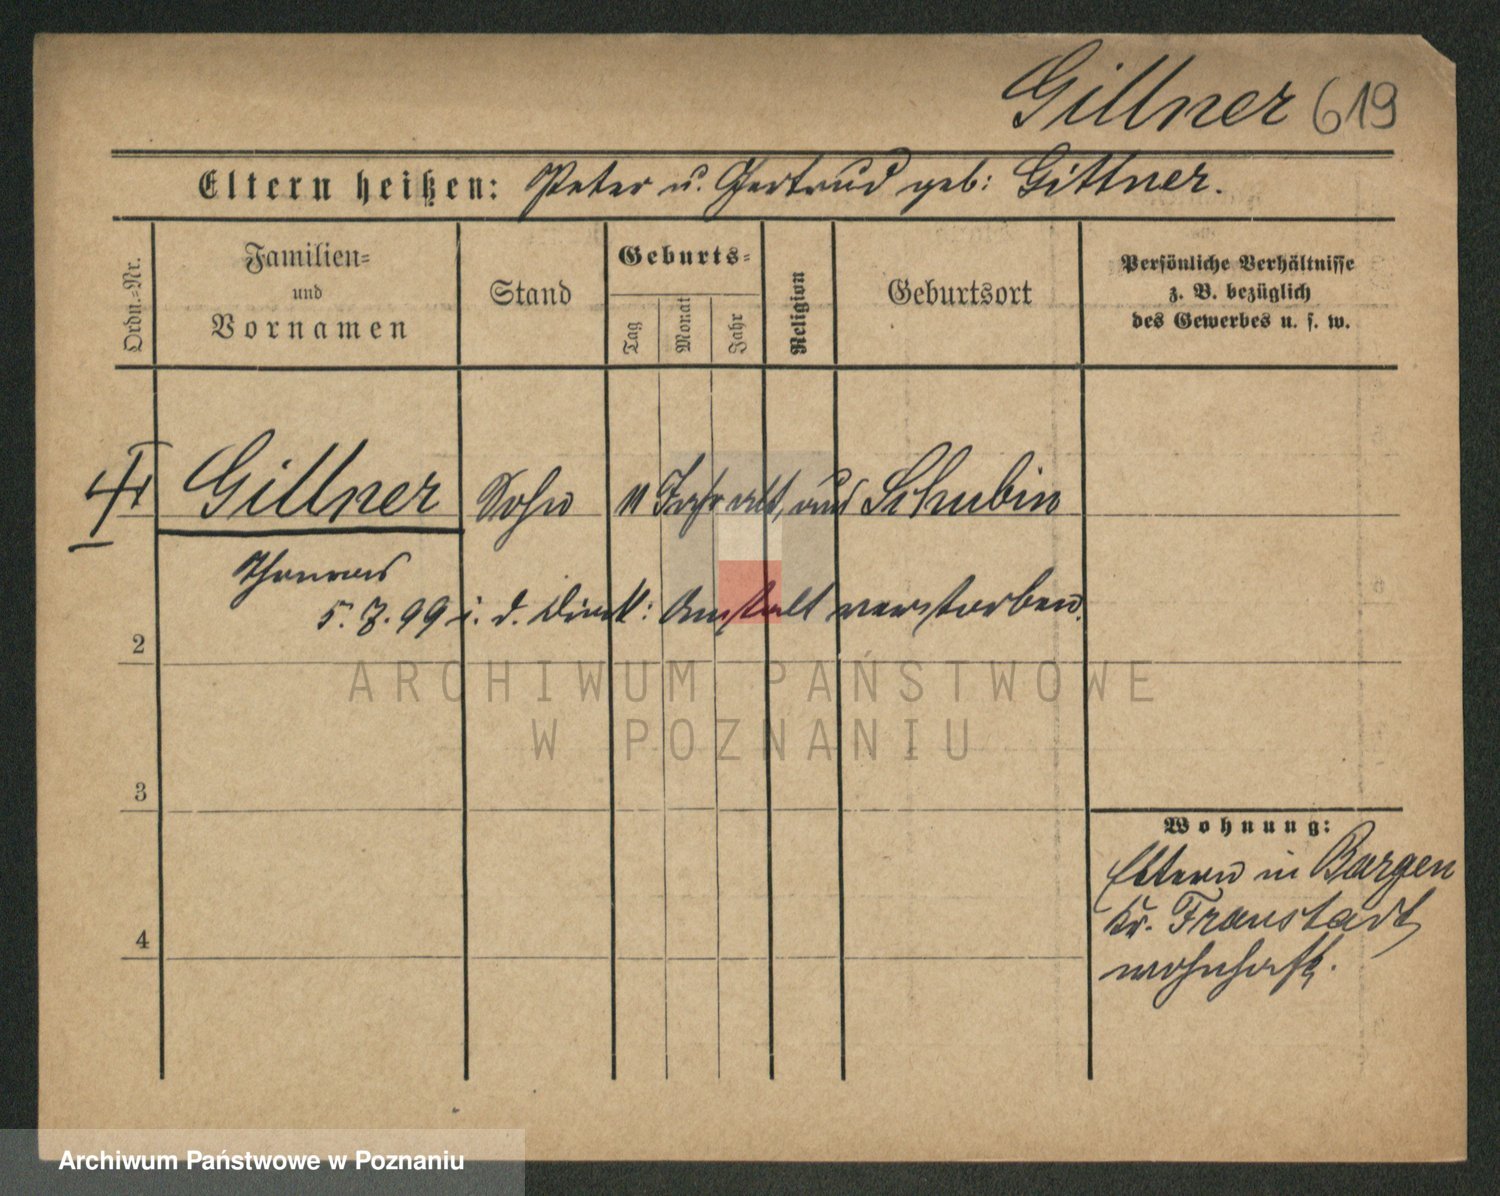 Gillner 619
Eltern heißen: Peter u. Gertrud geb: Gittner.
Ordn.=Nr.
Familien=
und
Vornamen
Stand
Geburts=
Tag
Monat
Jahr
Religion
Geburtsort
Persönliche Verhältnisse
z. B. bezüglich
des Gewerbes u. s. w.
Gillner Sohn 11 Jahr alt, aus Schubin
Thomas
5. 7. 99 i. d. Diak: Anstalt verstorben.
2
3
4
Wohnung:
Eltern in Bargen
Kr. Fraustadt
wohnhaft.
ARCHIWUM PAŃSTWOWE
W POZNANIU
Archiwum Państwowe w Poznaniu